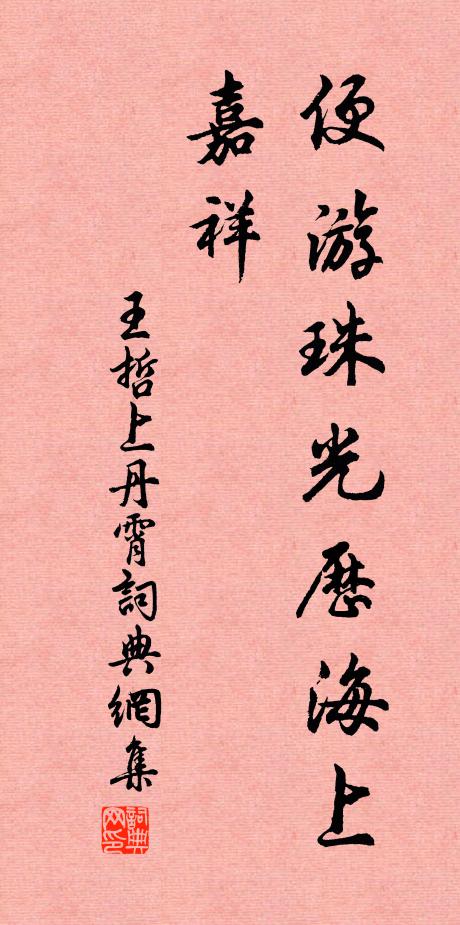 便游珠光歷海上
嘉祥
王哲上丹霄詞典網集
詞典网印